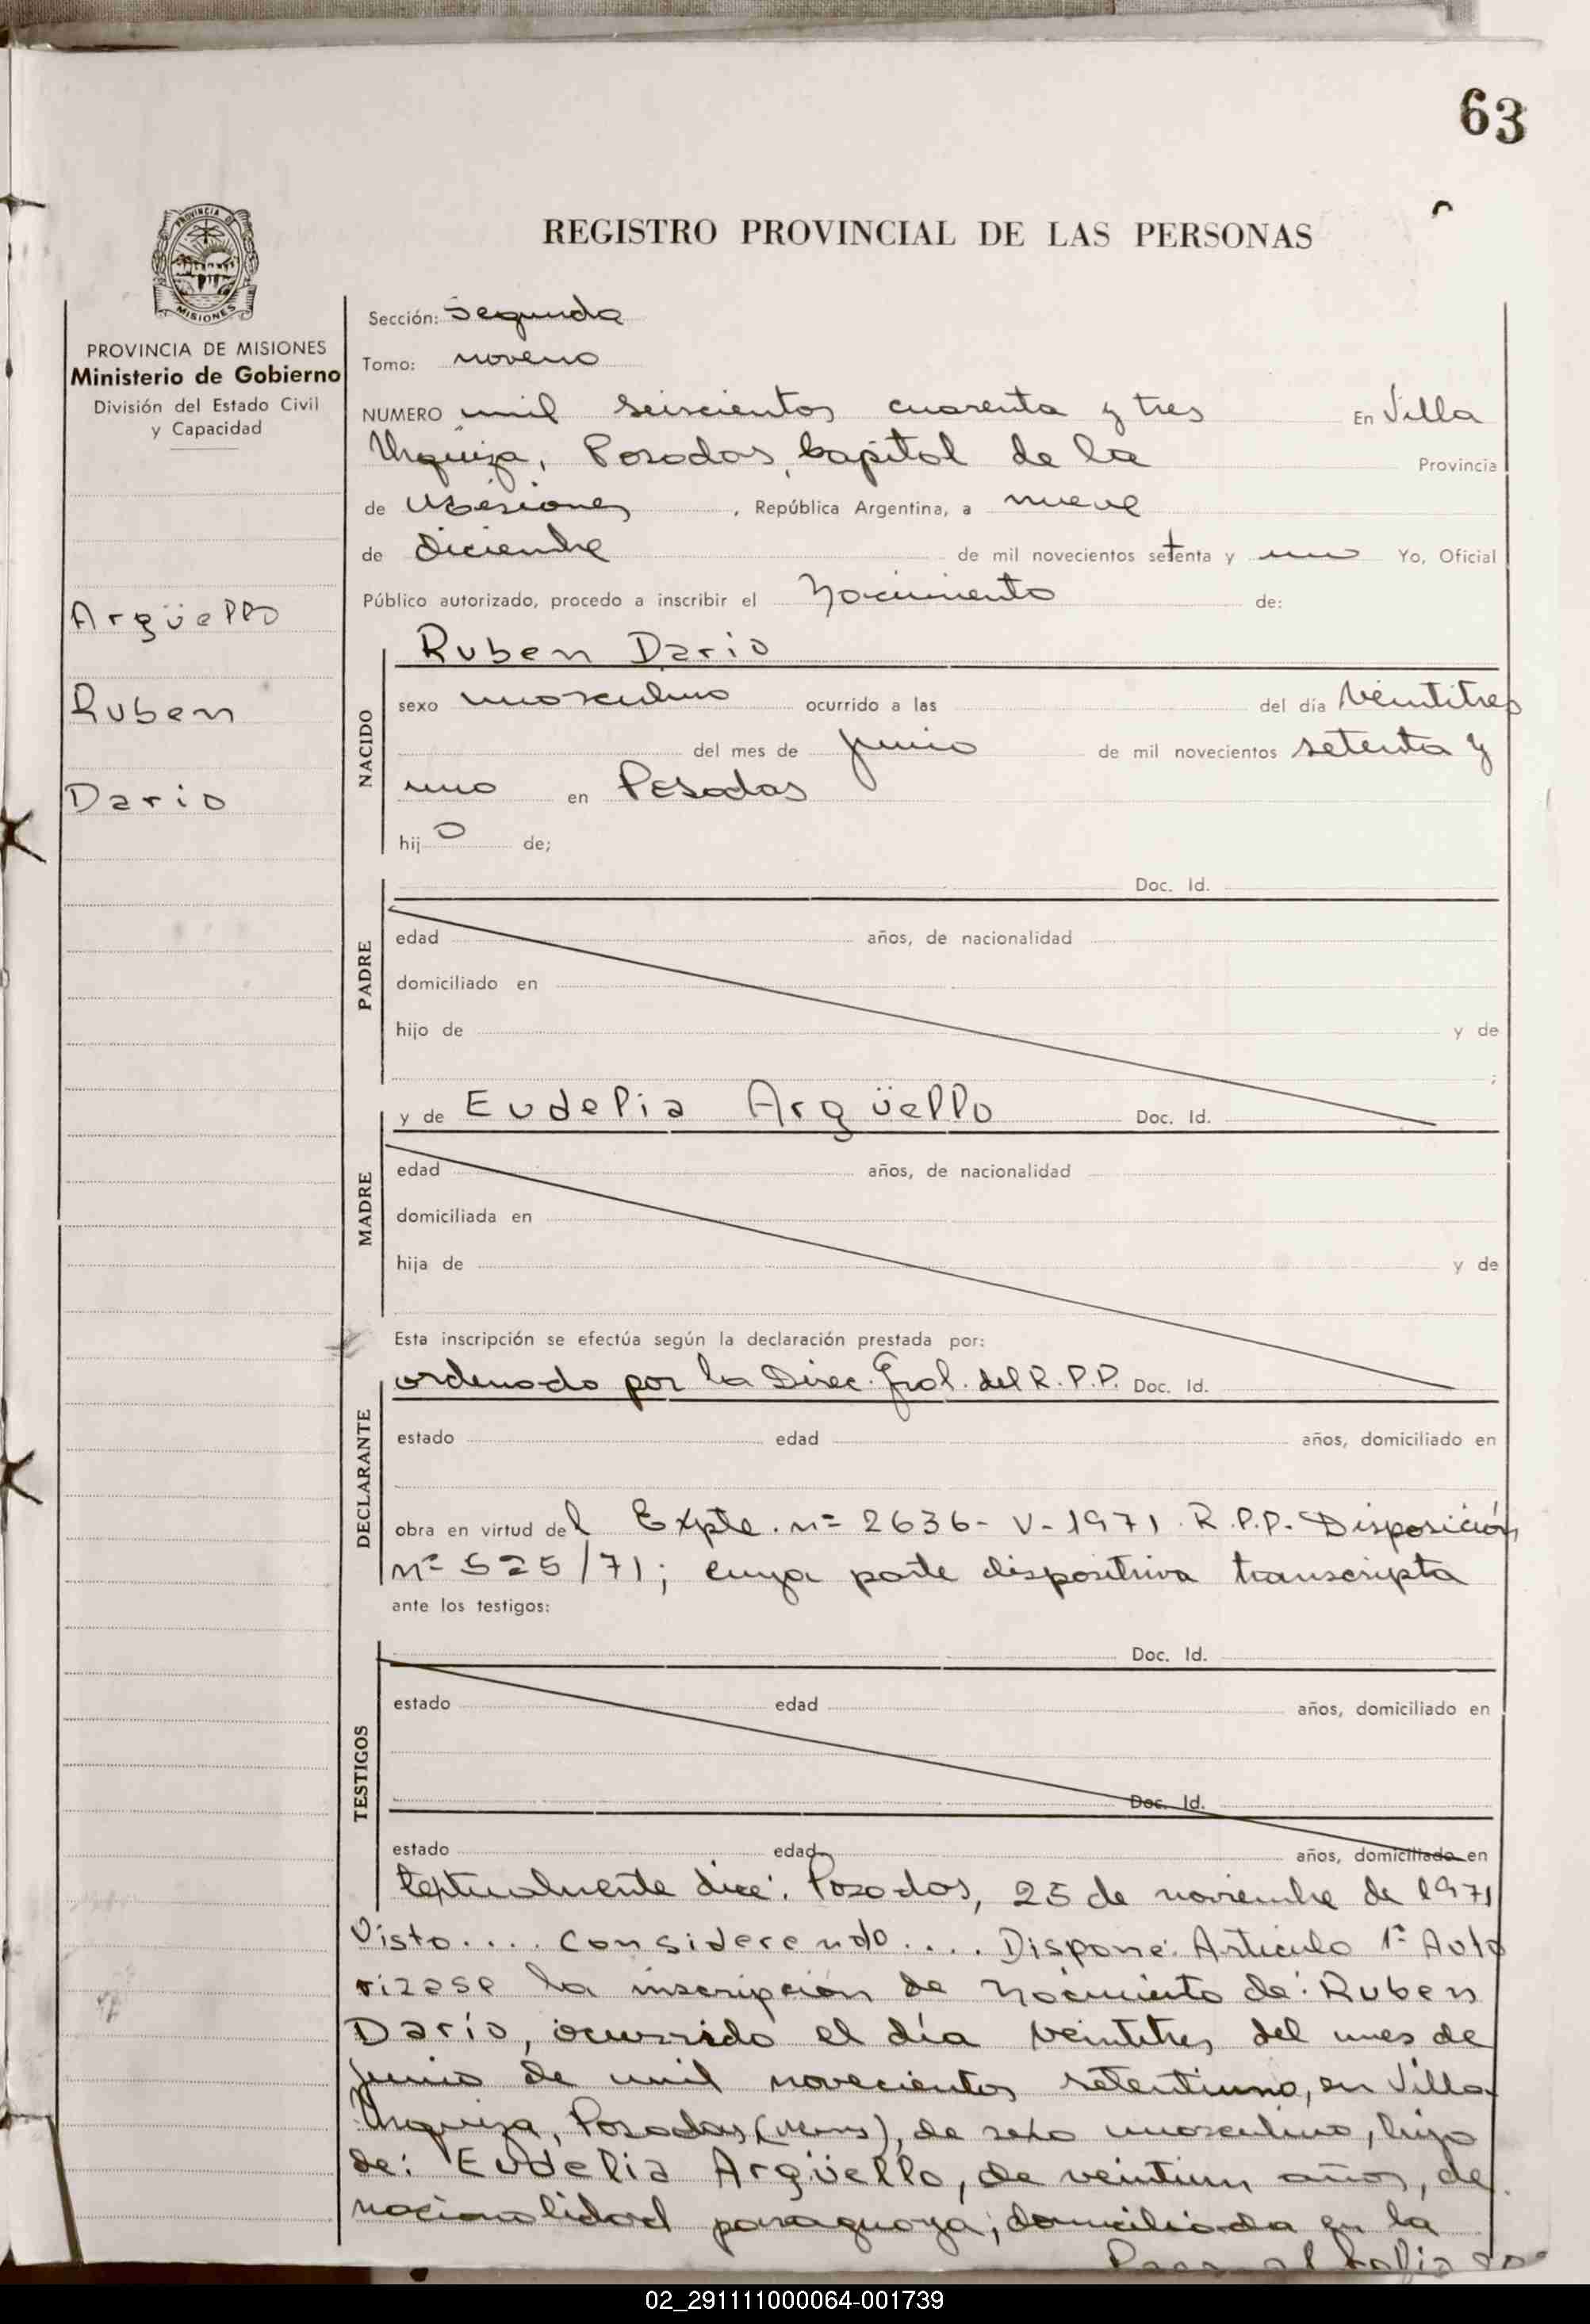 63
REGISTRO PROVINCIAL DE LAS PERSONAS
PROVINCIA DE
MISIONES
PROVINCIA DE MISIONES
Ministerio de Gobierno
División del Estado Civil
y Capacidad
Argüello
Ruben
Dario
Sección: Segunda
Tomo: noveno
NUMERO mil seiscientos cuarenta y tres En Villa
Urquiza, Posadas, Capital de la Provincia
de Misiones, República Argentina, a nueve
de diciembre de mil novecientos setenta y uno Yo, Oficial
Público autorizado, procedo a inscribir el Nacimiento de:
NACIDO
Ruben Dario
sexo masculino ocurrido a las del día Veintitres
del mes de junio de mil novecientos setenta y
uno en Posadas
hijo de;
PADRE
Doc. Id.
edad años, de nacionalidad
domiciliado en
hijo de y de
;
MADRE
y de Eudelia Argüello Doc. Id.
edad años, de nacionalidad
domiciliada en
hija de y de
Esta inscripción se efectúa según la declaración prestada por:
DECLARANTE
ordenado por la Direc. Gral. del R.P.P. Doc. Id.
estado edad años, domiciliado en
obra en virtud del Expte. nº 2636-V-1971 R.P.P. Disposición
nº 525/71; cuya parte dispositiva transcripta
ante los testigos:
TESTIGOS
Doc. Id.
estado edad años, domiciliado en
Doc. Id.
estado edad años, domiciliado en
textualmente dice: Posadas, 25 de noviembre de 1971
Visto.... Considerando.... Dispone: Artículo 1º Auto
rizase la inscripción de nacimiento de: Ruben
Darío, ocurrido el día veintitres del mes de
junio de mil novecientos setentiuno, en Villa
Urquiza, Posadas (Mnes), de sexo masculino, hijo
de: Eudelia Argüello, de veintiun años, de
nacionalidad paraguaya; domiciliada en la
Pasa al folio
02_291111000064-001739